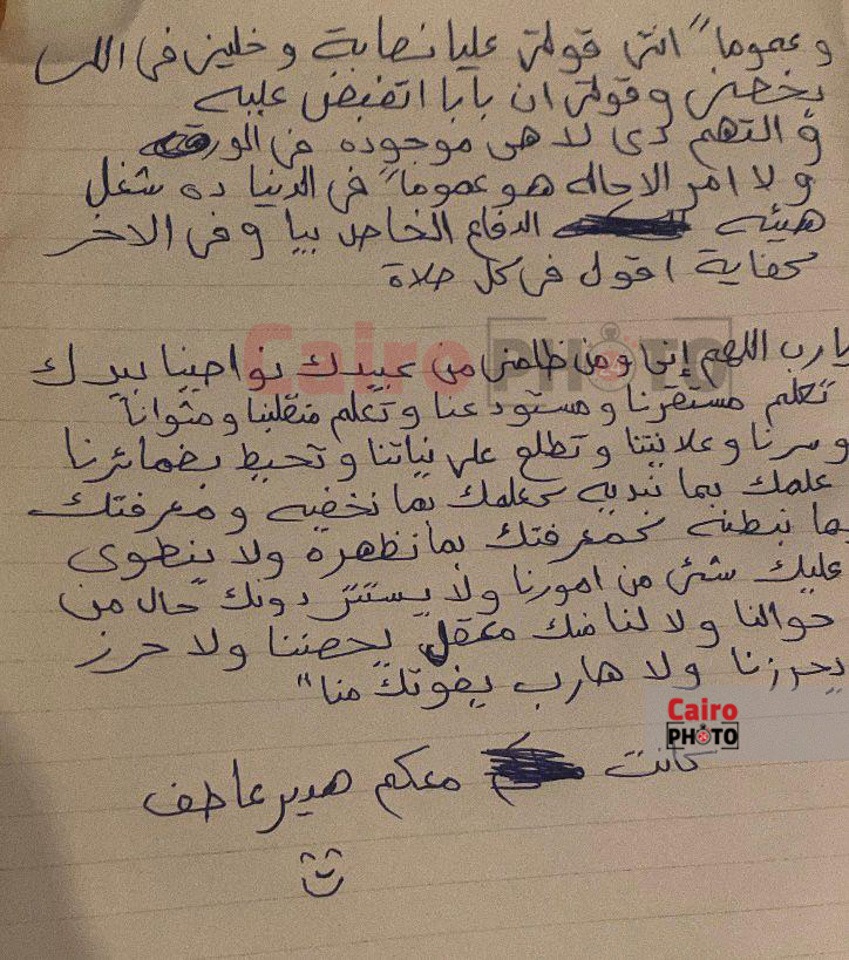 وعموماً انتى قولتى عليا نصابة وخلينى فى اللى
يخصنى وقولتى ان بابا اتقبض عليه
و التهم دى لا هى موجوده فى الورقه
ولا امر الاحاله هو عموماً فى الدنيا ده شغل
هيئه الدفاع الخاصه بيا وفى الاخر
كفاية اقول فى كل صلاة
Cairo PHOTO
يارب اللهم إنى ومن ظلمنى من عبيدك نواصينا بيدك
تعلم مستقرنا ومستودعنا وتعلم منقلبنا ومثوانا
وسرنا وعلانيتنا وتطلع على نياتنا وتحيط بضمائرنا
علمك بما نبديه كعلمك بما نخفيه ومعرفتك
بما نبطنه كمعرفتك بما نظهره ولا ينطوى
عليك شئ من امورنا ولا يستتر دونك حال من
حوالنا ولا لنا منك معقل يحصننا ولا حرز
يحرزنا ولا هارب يفوتك منا"
Cairo
PHOTO
كانت معكم هدير عاطف